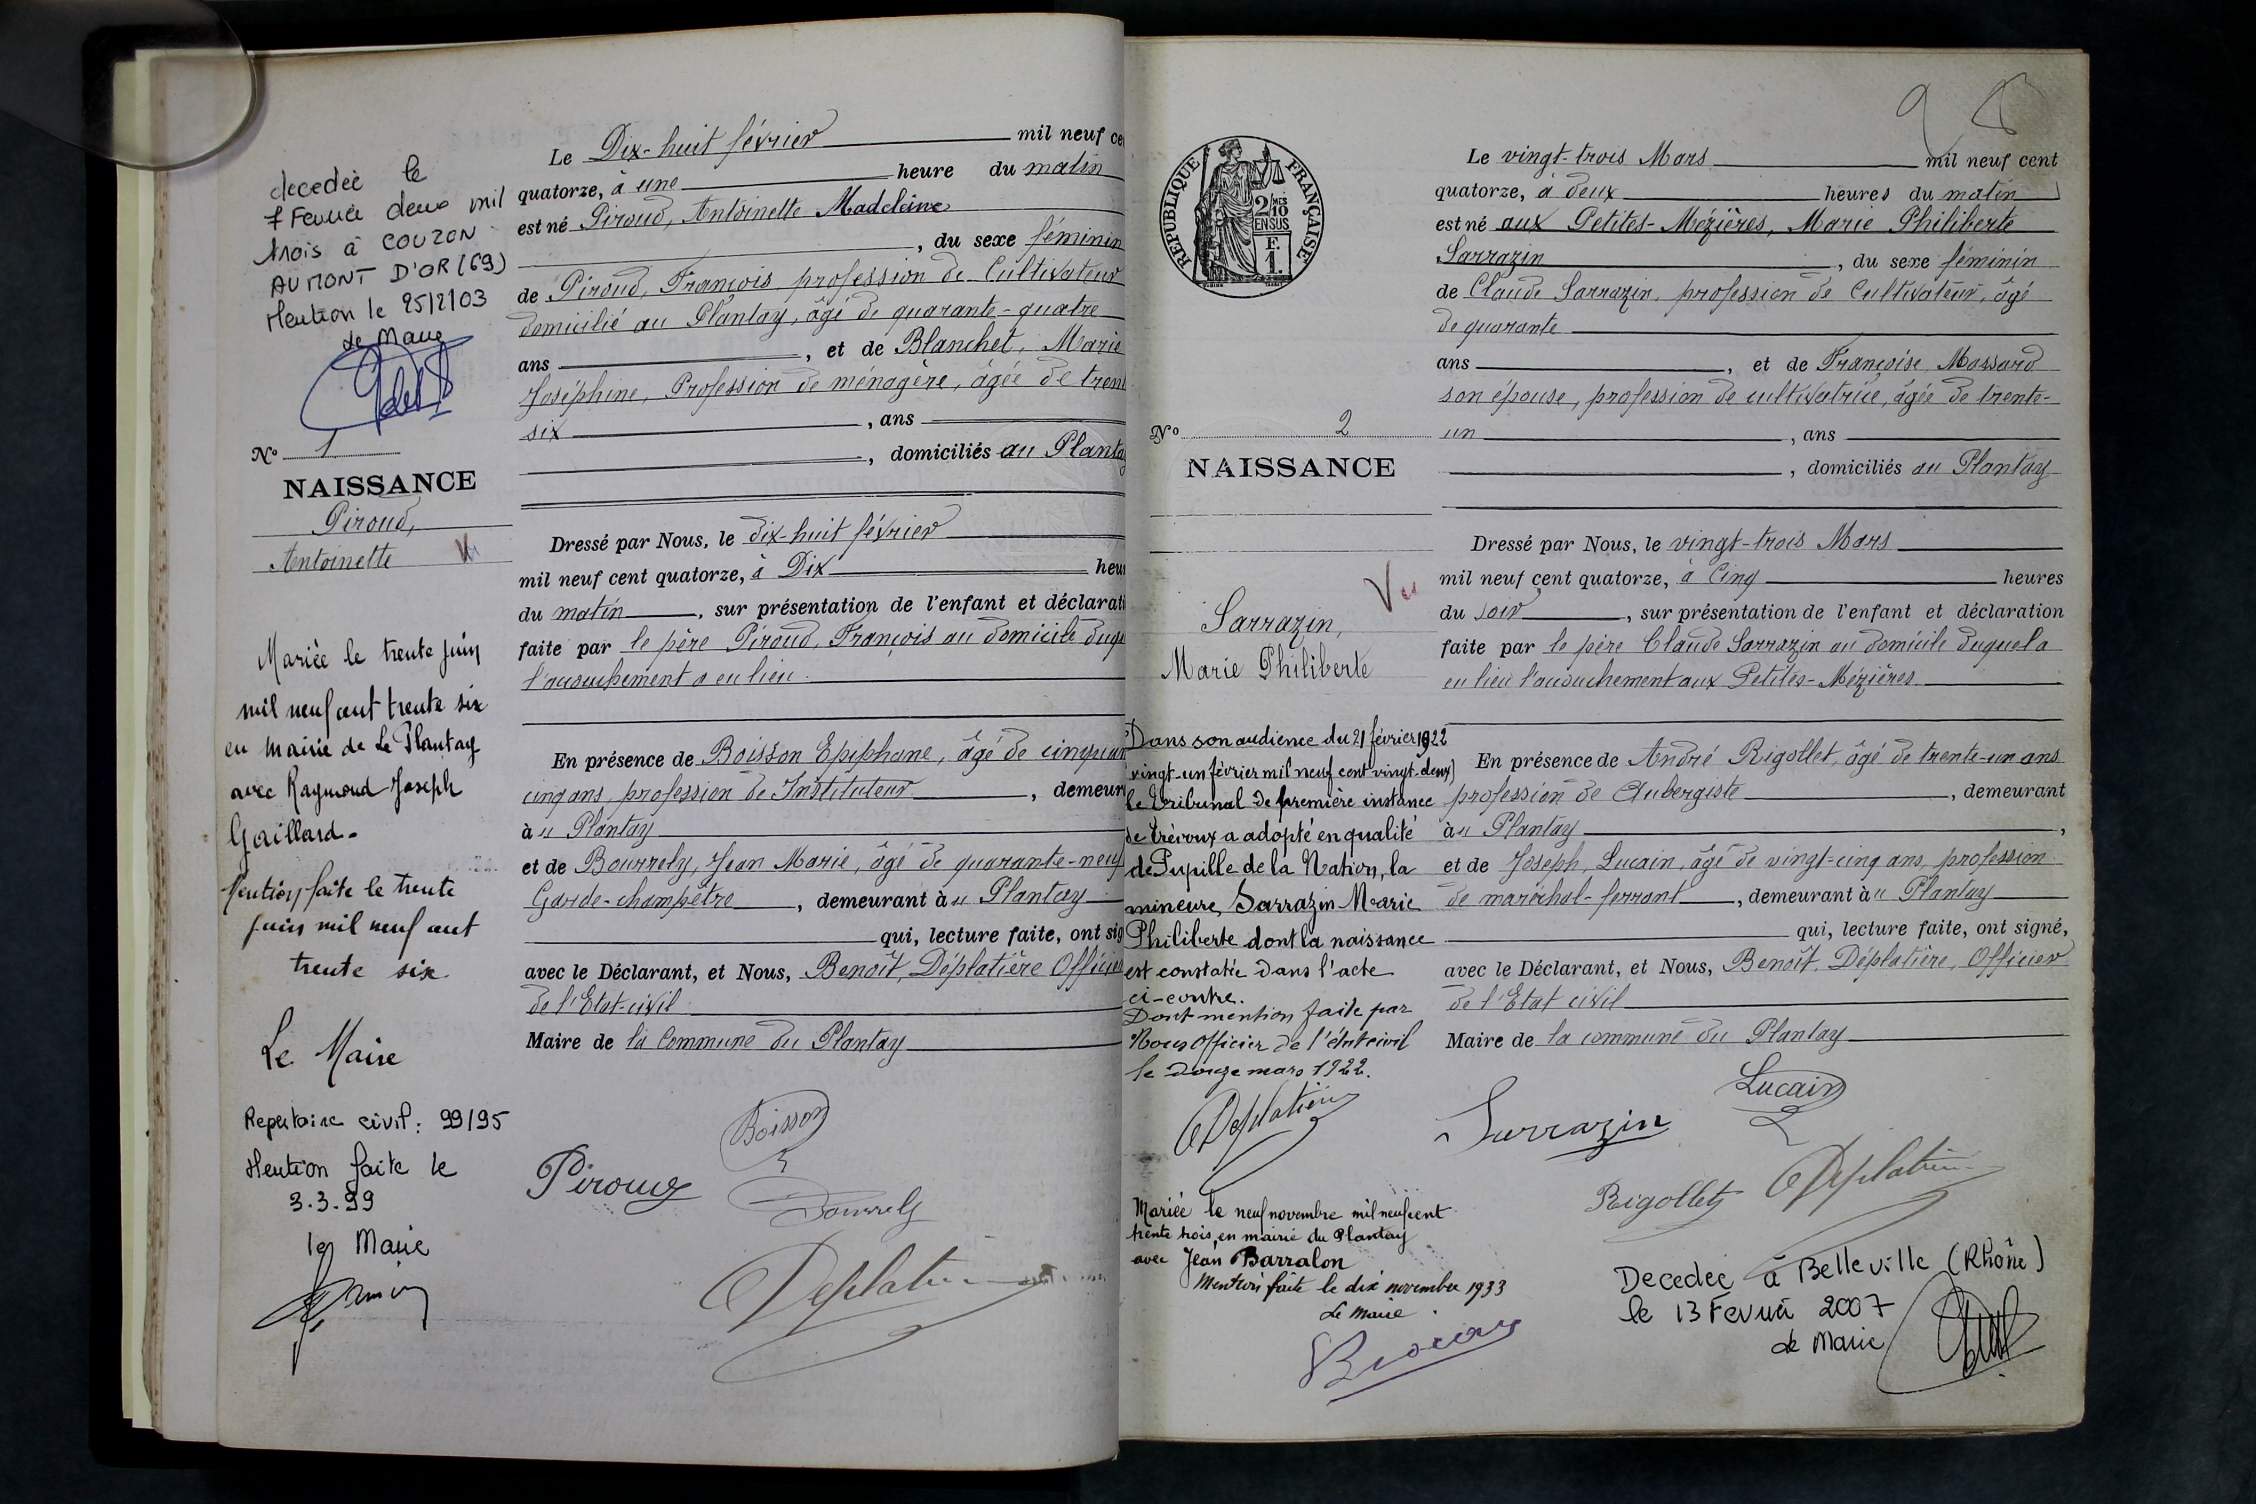 decedée le
7 Fevrier deux mil
trois à COUZON
AU MONT D'OR (69)
Mention le 25/2/03
Le Maire
N° 1
NAISSANCE
Piroud,
Antoinette
Vu
Mariée le trente juin
mil neuf cent trente six
en mairie de Le Plantay
avec Raymond Joseph
Gaillard.
Mention faite le trente
juin mil neuf cent
trente six
Le Maire
Repertoire civil : 99/95
Mention faite le
3.3.99
le Maire
Le Dix-huit février mil neuf ce
quatorze, à une heure du matin
est né Piroud, Antoinette Madeleine
, du sexe féminin
de Piroud, François profession de Cultivateur
domicilié au Plantay, âgé de quarante-quatre
ans , et de Blanchet, Marie
Joséphine, Profession de ménagère, âgée de trent
six , ans
, domiciliés au Planta
Dressé par Nous, le dix-huit février
mil neuf cent quatorze, à Dix heu
du matin , sur présentation de l'enfant et déclarati
faite par le père Piroud, François au domicile duqu
l'accouchement a eu lieu.
En présence de Boisson Epiphane, âgé de cinquan
cinq ans, profession de Instituteur , demeur
à u Plantay
et de Bourrely, Jean Marie, âgé de quarante-neuf
Garde-champêtre , demeurant à u Plantay
qui, lecture faite, ont sig
avec le Déclarant, et Nous, Benoît, Déplatière Officier
de l'Etat-civil
Maire de la Commune du Plantay
Boisson
Piroud
Bourrely
Deplatière
REPUBLIQUE FRANÇAISE
2/10
EN SUS
F.
1.
N° 2
NAISSANCE
Vu
Sarrazin,
Marie Philiberte
Dans son audience du 21 février 1922
vingt-un février mil neuf cent vingt-deux)
le tribunal de première instance
de Trévoux a adopté en qualité
de Pupille de la Nation, la
mineure, Sarrazin Marie
Philiberte dont la naissance
est constatée dans l'acte
ci-contre.
Dont mention faite par
Nous Officier de l'état civil
le douze mars 1922.
Deplatière
Mariée le neuf novembre mil neuf cent
trente trois, en mairie du Plantay
avec Jean Barralon
Mention faite le dix novembre 1933
Le Maire
Le vingt-trois Mars mil neuf cent
quatorze, à deux heures du matin
est né aux Petites-Mézières, Marie Philiberte
Sarrazin , du sexe féminin
de Claude Sarrazin, profession de Cultivateur, âgé
de quarante
ans , et de Françoise Massard
son épouse, profession de cultivatrice, âgée de trente-
un , ans
, domiciliés au Plantay
Dressé par Nous, le vingt-trois Mars
mil neuf cent quatorze, à Cinq heures
du soir , sur présentation de l'enfant et déclaration
faite par le père Claude Sarrazin au domicile duquel a
eu lieu l'accouchement aux Petites-Mézières
En présence de André Rigollet, âgé de trente-un ans
profession de Aubergiste , demeurant
à u Plantay ,
et de Joseph, Lucain, âgé de vingt-cinq ans, profession
de maréchal-ferrant , demeurant à u Plantay
qui, lecture faite, ont signé,
avec le Déclarant, et Nous, Benoît, Déplatière, Officier
de l'Etat civil
Maire de la commune du Plantay
Lucain
Sarrazin
Rigollet
Deplatière
Decedée à Belleville (Rhône)
le 13 Fevrier 2007
Le Maire